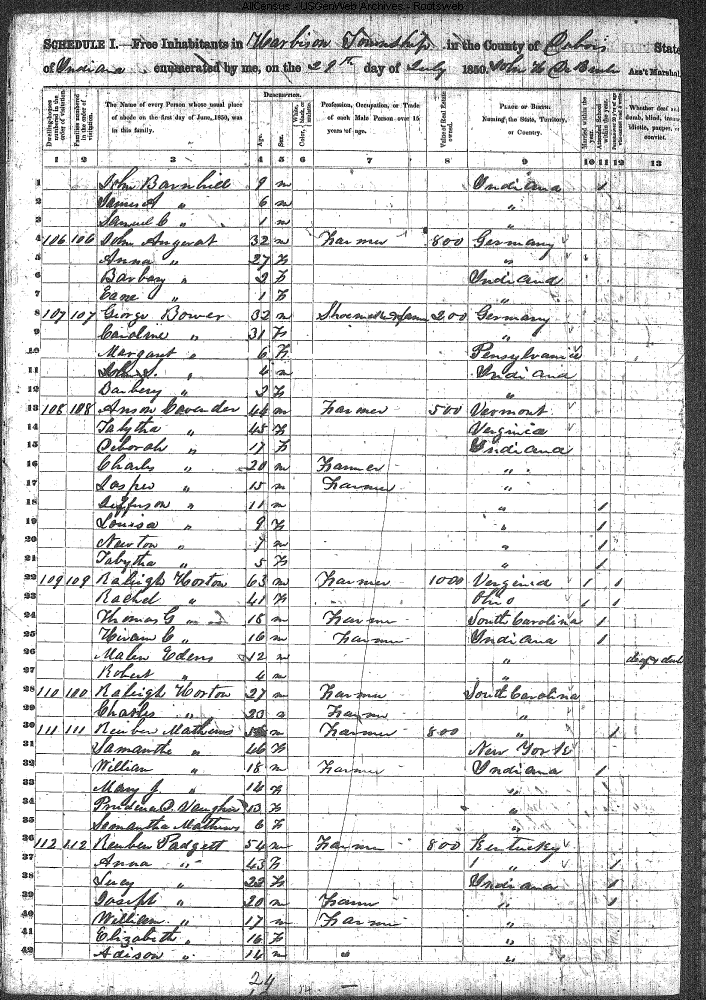 AllCensus - USGenWeb Archives - Rootsweb
SCHEDULE I.—Free Inhabitants in Harbison Township in the County of Dubois State
of Indiana enumerated by me, on the 29th day of July 1850. John H Ass't Marshal
Dwelling-houses numbered in the order of visitation. Families numbered in the order of visitation. The Name of every Person whose usual place of abode on the first day of June, 1850, was in this family. Description. Age. Sex. White, black, or mulatto. Color, Profession, Occupation, or Trade of each Male Person over 15 years of age. Value of Real Estate owned. Place of Birth. Naming the State, Territory, or Country. Married within the year. Attended School within the year. Whether deaf and dumb, blind, insane, idiotic, pauper, or convict.
1 2 3 4 5 6 7 8 9 10 11 12 13
1 John Barnhill 9 m Indiana 1
2 James A " 6 m "
3 Samuel C " 1 m "
4 106 106 John Angerat 32 m Farmer 800 Germany
5 Anna " 27 F "
6 Barbary " 2 F Indiana
7 " 1 F "
8 107 107 George Bower 32 m 200 Germany
9 Caroline " 31 F "
10 Margaret " 6 F Pensylvania
11 John " 4 m Indiana
12 Barbery " 2 F "
13 108 108 Anson Cavender 44 m Farmer 500 Vermont
14 Tabytha " 45 F Verginia
15 Deborah " 17 F Indiana
16 Charles " 20 m Farmer "
17 Jasper " 15 m Farmer "
18 Jefferson " 11 m " 1
19 Louisa " 9 F " 1
20 Newton " 7 m " 1
21 Tabytha " 5 F " 1
22 109 109 Raleigh Horton 63 m Farmer 1000 Verginia 1 1
23 Rachel " 41 F Ohio 1 1
24 Thomas G " 18 m Farmer South Carolina 1
25 Hiram C " 16 m Farmer Indiana 1
26 Malen Edens 12 m " deaf & dumb
27 Robert " 4 m "
28 110 100 Raleigh Horton 27 m Farmer South Carolina
29 Charles " 23 m Farmer "
30 111 111 Reuben Mathews m Farmer 800 " 1
31 Samantha " 46 F New York
32 William " 18 m Farmer Indiana 1
33 Mary J. " 14 F "
34 Prudence D. Vaughn 13 F "
35 Semantha Mathews 6 F "
36 112 112 Reuben Padgett 54 m Farmer 800 Kentucky
37 Anna " 43 F " 1
38 Lucy " 23 F Indiana 1
39 Joseph " 20 m Farm " 1
40 William " 17 m Farmer "
41 Elizabeth " 16 F "
42 Adison " 14 m " "
24